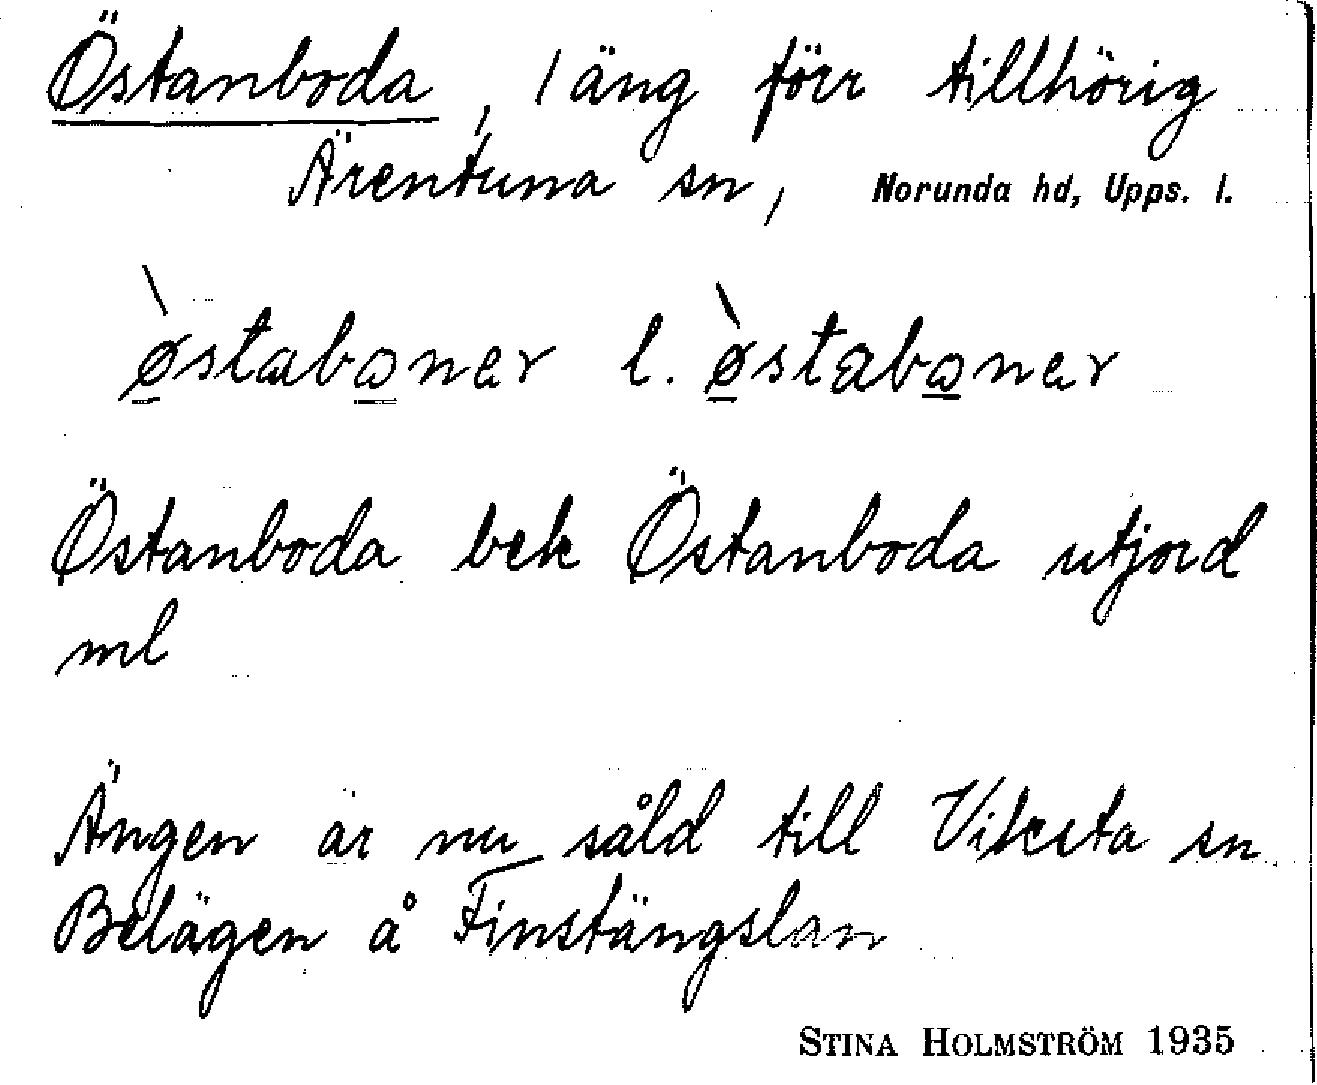 Östanboda, 1 äng förr tillhörig
Ärentuna sn, Norunda hd, Upps. l.
`østabɷner l. `østabɷner
Östanboda bek Östanboda utjord
ml
Ängen är nu såld till Viksta sn
Belägen å Finstängslan
STINA HOLMSTRÖM 1935